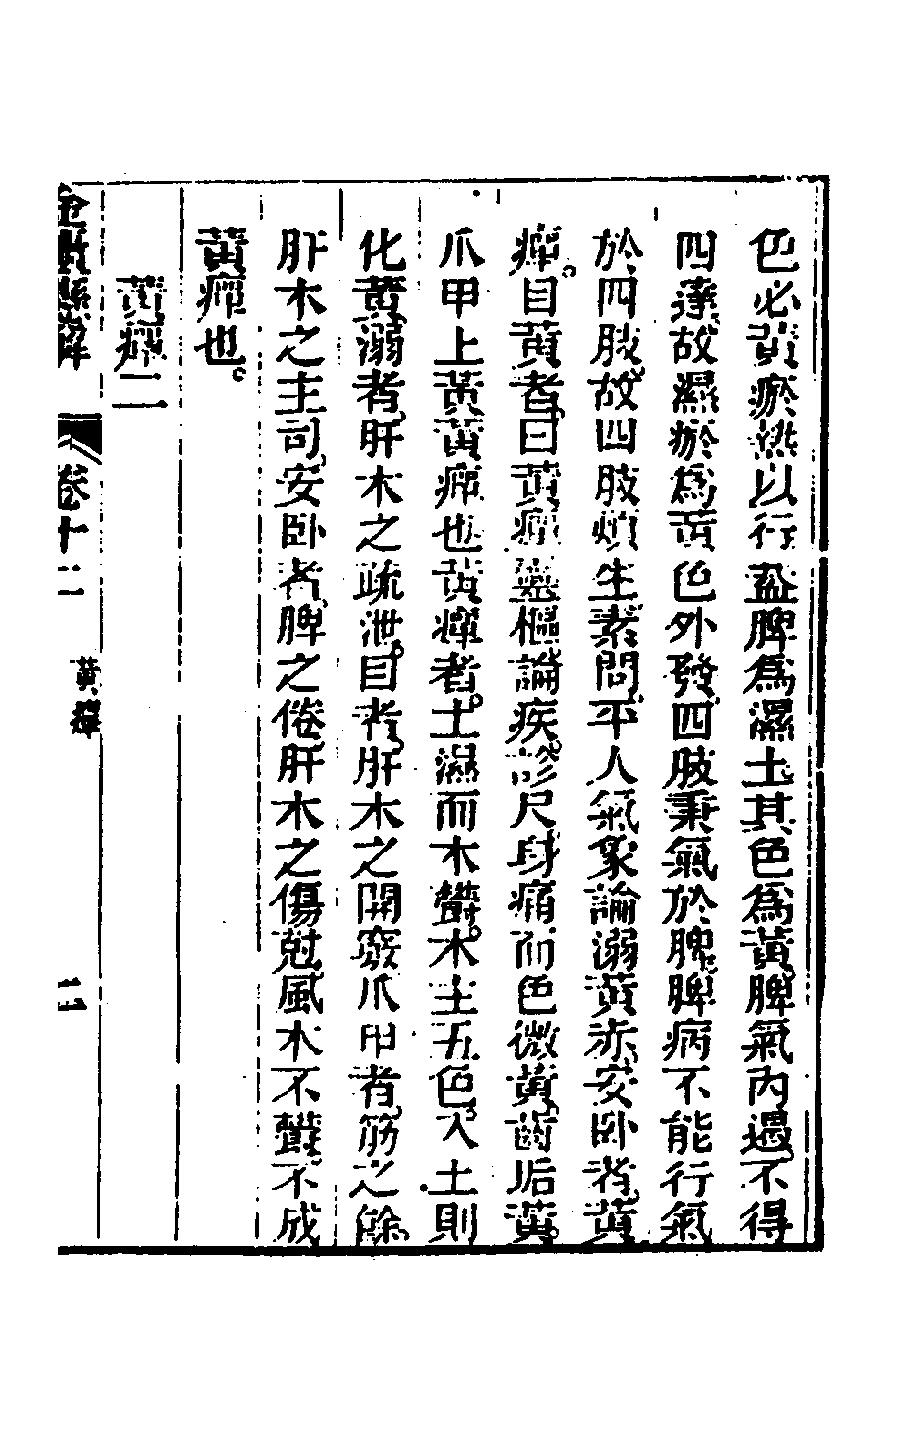 色必黃瘀熱以行蓋脾爲濕土其色爲黃脾氣內遏不得
四達故濕瘀爲黃色外發四肢秉氣於脾脾病不能行氣
於四肢故四肢煩生素問平人氣象論溺黃赤安卧者黃
癉目黃者曰黃癉靈樞論疾診尺身痛而色微黃齒垢黃
爪甲上黃黃癉也黃癉者土濕而木鬱木主五色入土則
化黃溺者肝木之疏泄目者肝木之開竅爪甲者筋之餘
肝木之主司安卧者脾之倦肝木之傷尅風木不鬱不成
黃癉也
黃癉二
金匱懸解 卷十二 黃癉 二